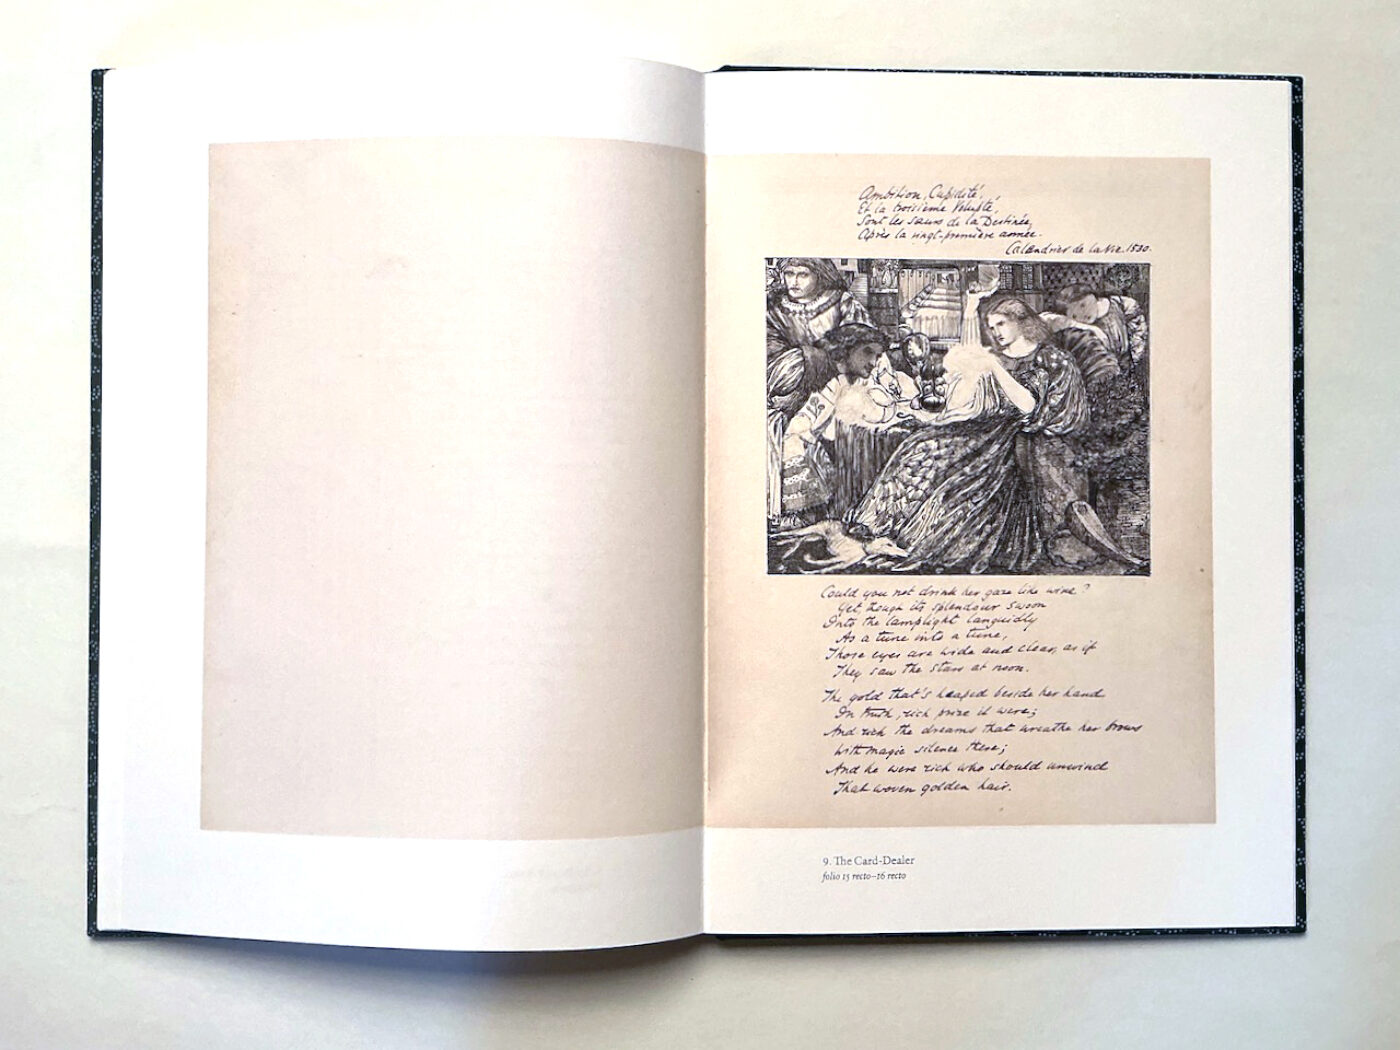 Ambition, Cupidité,
Et la troisième Volupté,
Sont les sœurs de la Destinée,
Après la vingt-première année.
Calendrier de la Vie. 1530.
Could you not drink her gaze like wine?
Yet, though its splendour swoon
Into the lamplight languidly
As a tune into a tune,
Those eyes are wide and clear, as if
They saw the stars at noon.
The gold that's heaped beside her hand
In truth, rich prize it were;
And rich the dreams that wreathe her brows
With magic silence there;
And he were rich who should unwind
That woven golden hair.
9. The Card-Dealer
folio 15 recto–16 recto